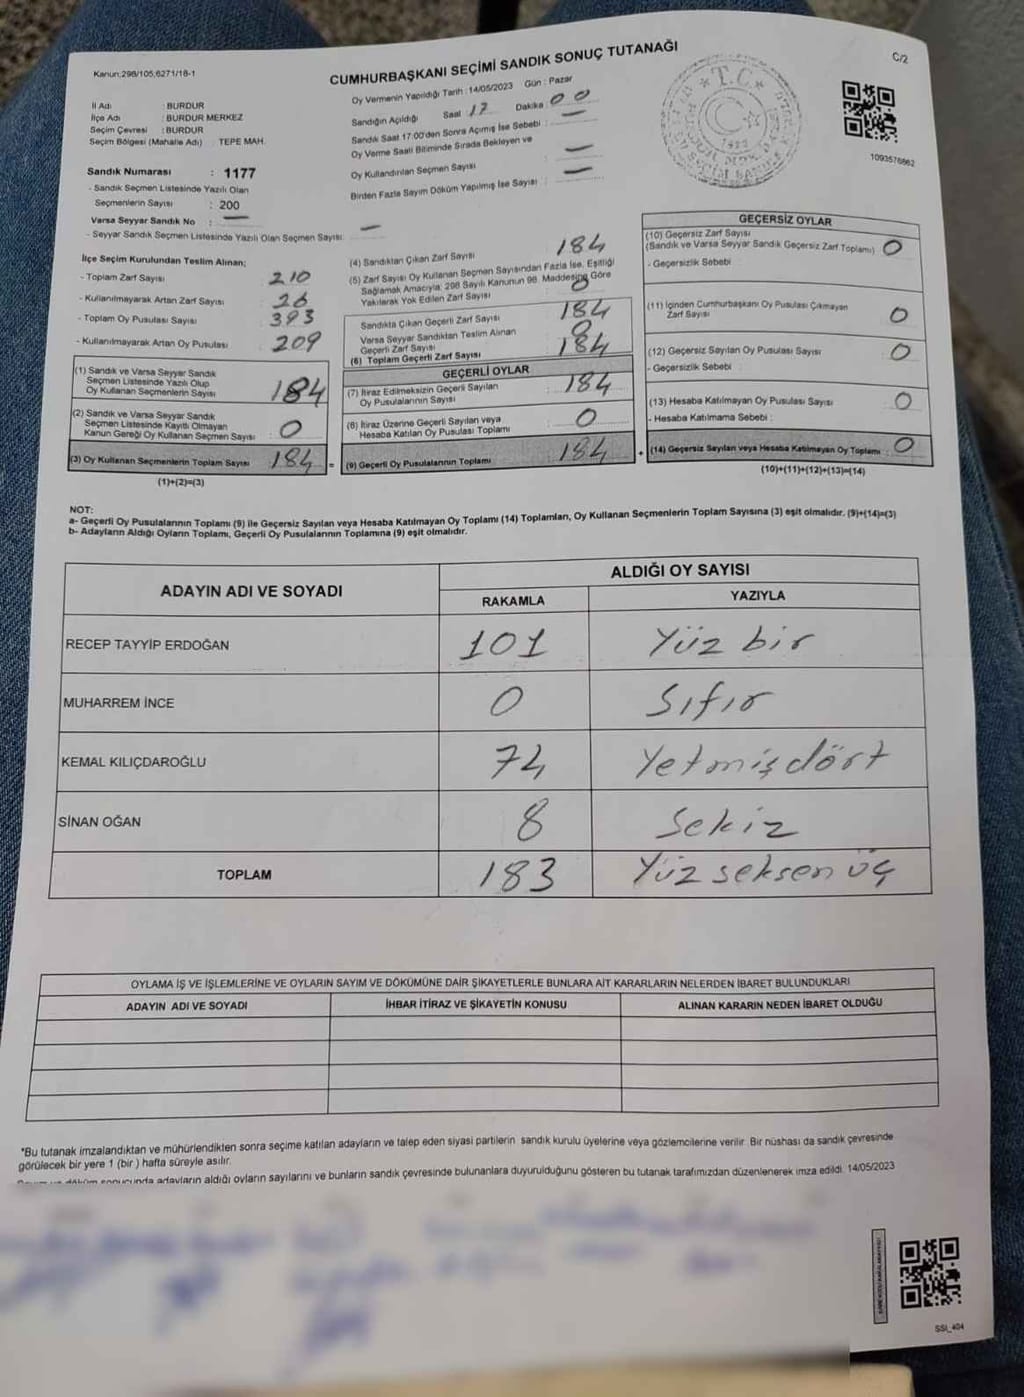 Kanun:298/105,6271/18-1
CUMHURBAŞKANI SEÇİMİ SANDIK SONUÇ TUTANAĞI
C/2
İl Adı : BURDUR
İlçe Adı : BURDUR MERKEZ
Seçim Çevresi : BURDUR
Seçim Bölgesi (Mahalle Adı) : TEPE MAH.
Sandık Numarası : 1177
- Sandık Seçmen Listesinde Yazılı Olan
Seçmenlerin Sayısı : 200
Varsa Seyyar Sandık No : —
- Seyyar Sandık Seçmen Listesinde Yazılı Olan Seçmen Sayısı: —
Oy Vermenin Yapıldığı Tarih : 14/05/2023 Gün : Pazar
Sandığın Açıldığı Saat 17 Dakika : 00
Sandık Saat 17:00'den Sonra Açılmış İse Sebebi : —
Oy Verme Saati Bitiminde Sırada Bekleyen ve
Oy Kullandırılan Seçmen Sayısı : —
Birden Fazla Sayım Döküm Yapılmış İse Sayısı : —
T.C.
1093576862
İlçe Seçim Kurulundan Teslim Alınan;
- Toplam Zarf Sayısı : 210
- Kullanılmayarak Artan Zarf Sayısı : 26
- Toplam Oy Pusulası Sayısı : 393
- Kullanılmayarak Artan Oy Pusulası : 209
(1) Sandık ve Varsa Seyyar Sandık
Seçmen Listesinde Yazılı Olup
Oy Kullanan Seçmenlerin Sayısı : 184
(2) Sandık ve Varsa Seyyar Sandık
Seçmen Listesinde Kayıtlı Olmayan
Kanun Gereği Oy Kullanan Seçmen Sayısı : 0
(3) Oy Kullanan Seçmenlerin Toplam Sayısı : 184
(1)+(2)=(3)
(4) Sandıktan Çıkan Zarf Sayısı : 184
(5) Zarf Sayısı Oy Kullanan Seçmen Sayısından Fazla İse, Eşitliği
Sağlamak Amacıyla; 298 Sayılı Kanunun 98. Maddesine Göre
Yakılarak Yok Edilen Zarf Sayısı : 0
Sandıkta Çıkan Geçerli Zarf Sayısı : 184
Varsa Seyyar Sandıktan Teslim Alınan
Geçerli Zarf Sayısı : 0
(6) Toplam Geçerli Zarf Sayısı : 184
GEÇERLİ OYLAR
(7) İtiraz Edilmeksizin Geçerli Sayılan
Oy Pusulalarının Sayısı : 184
(8) İtiraz Üzerine Geçerli Sayılan veya
Hesaba Katılan Oy Pusulası Toplamı : 0
= (9) Geçerli Oy Pusulalarının Toplamı : 184
GEÇERSİZ OYLAR
(10) Geçersiz Zarf Sayısı
(Sandık ve Varsa Seyyar Sandık Geçersiz Zarf Toplamı) : 0
- Geçersizlik Sebebi :
(11) İçinden Cumhurbaşkanı Oy Pusulası Çıkmayan
Zarf Sayısı : 0
(12) Geçersiz Sayılan Oy Pusulası Sayısı : 0
- Geçersizlik Sebebi :
(13) Hesaba Katılmayan Oy Pusulası Sayısı : 0
- Hesaba Katılmama Sebebi :
+ (14) Geçersiz Sayılan veya Hesaba Katılmayan Oy Toplamı : 0
(10)+(11)+(12)+(13)=(14)
NOT:
a- Geçerli Oy Pusulalarının Toplamı (9) ile Geçersiz Sayılan veya Hesaba Katılmayan Oy Toplamı (14) Toplamları, Oy Kullanan Seçmenlerin Toplam Sayısına (3) eşit olmalıdır. (9)+(14)=(3)
b- Adayların Aldığı Oyların Toplamı, Geçerli Oy Pusulalarının Toplamına (9) eşit olmalıdır.
ADAYIN ADI VE SOYADI
ALDIĞI OY SAYISI
RAKAMLA YAZIYLA
RECEP TAYYİP ERDOĞAN 101 Yüz bir
MUHARREM İNCE 0 Sıfır
KEMAL KILIÇDAROĞLU 74 Yetmişdört
SİNAN OĞAN 8 Sekiz
TOPLAM 183 Yüz seksen üç
OYLAMA İŞ VE İŞLEMLERİNE VE OYLARIN SAYIM VE DÖKÜMÜNE DAİR ŞİKAYETLERLE BUNLARA AİT KARARLARIN NELERDEN İBARET BULUNDUKLARI
ADAYIN ADI VE SOYADI İHBAR İTİRAZ VE ŞİKAYETİN KONUSU ALINAN KARARIN NEDEN İBARET OLDUĞU
*Bu tutanak imzalandıktan ve mühürlendikten sonra seçime katılan adayların ve talep eden siyasi partilerin sandık kurulu üyelerine veya gözlemcilerine verilir. Bir nüshası da sandık çevresinde
görülecek bir yere 1 (bir) hafta süreyle asılır.
döküm sonucunda adayların aldığı oyların sayılarını ve bunların sandık çevresinde bulunanlara duyurulduğunu gösteren bu tutanak tarafımızdan düzenlenerek imza edildi. 14/05/2023
SSI_404